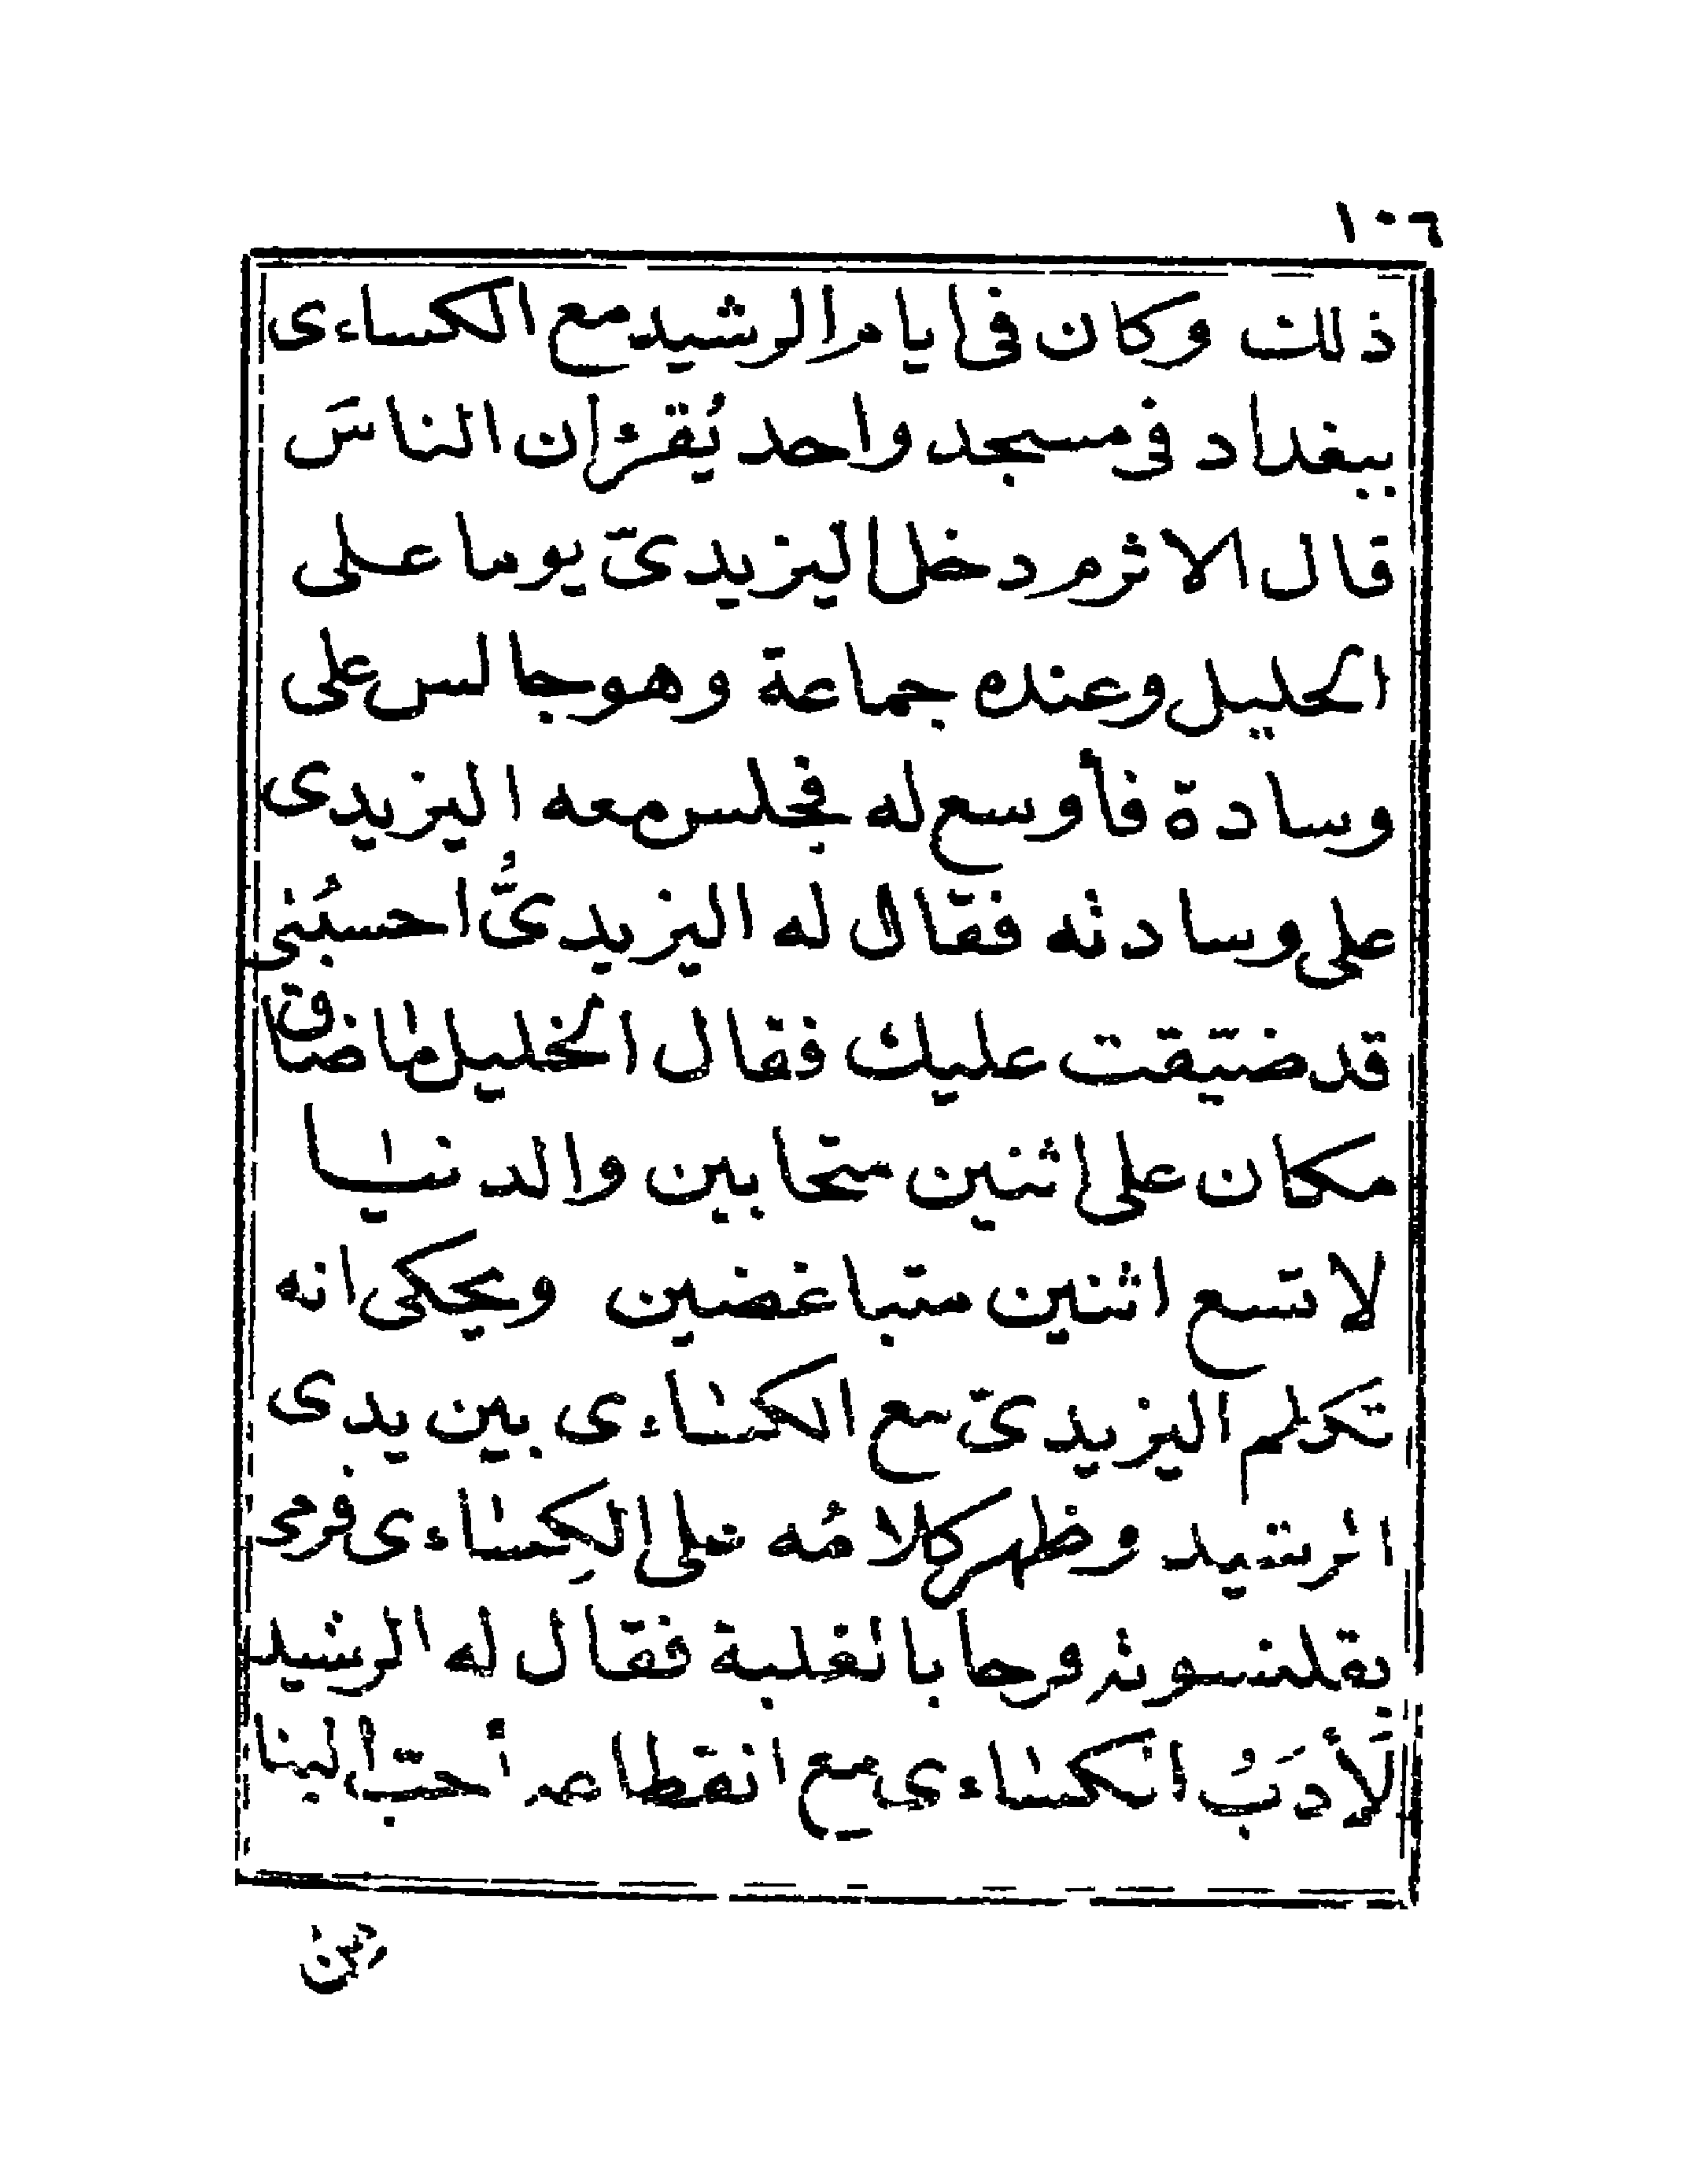 ١٠٦
ذلك وكان فى ايام الرشيد مع الكساءى
ببغداد فى مسجد واحد يُقرءان الناسَ
قال الاثرم دخل اليزيدىّ يوما على
الخليل وعنده جماعة وهو جالس على
وسادة فأوسع له فجلس معه اليزيدى
على وسادته فقال له اليزيدىُّ احسبُنى
قد ضيّقت عليك فقال الخليل ما ضاق
مكان على اثنين متحابين والدنيا
لا تسع اثنين متباغضين ويحكى انه
تكلم اليزيدىّ مع الكساءى بين يدى
الرشيد وظهر كلامُه على الكِساءى فرمى
بقلنسوته فرحا بالغلبة فقال له الرشيد
لَأدَبُ الكساءى مع انقطاعه أحبّ الينا